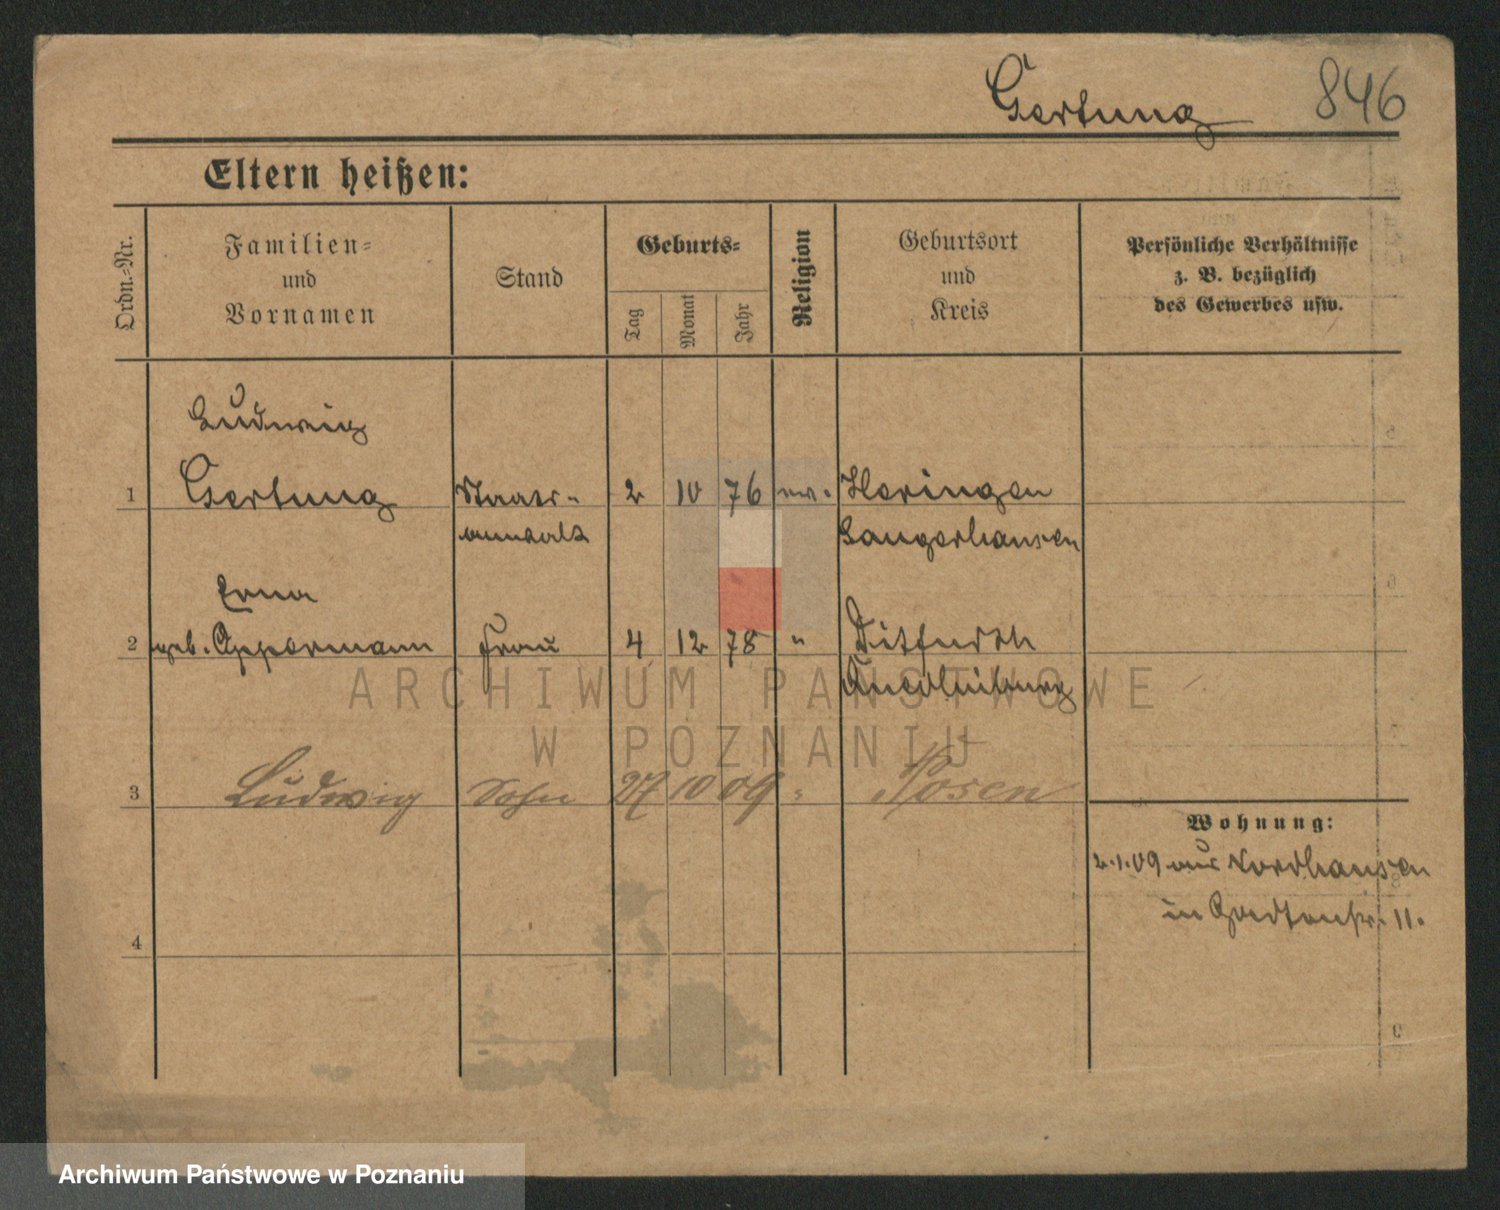 Gertung 846
Eltern heißen:
Ordn.-Nr.
Familien-
und
Vornamen
Stand
Geburts-
Tag
Monat
Jahr
Religion
Geburtsort
und
Kreis
Persönliche Verhältnisse
z. B. bezüglich
des Gewerbes usw.
Ludwig
1 Gertung Staats- 2 10 76 ev. Heringen
anwalt Sangerhausen
Erna
2 geb. Appermann Frau 4 12 78 " Ditfurth
Quedlinburg
3 Ludwig Sohn 27 10 09 " Posen
Wohnung:
2.1.09 aus Nordhausen
in 11.
4
9
ARCHIWUM PAŃSTWOWE
W POZNANIU
Archiwum Państwowe w Poznaniu